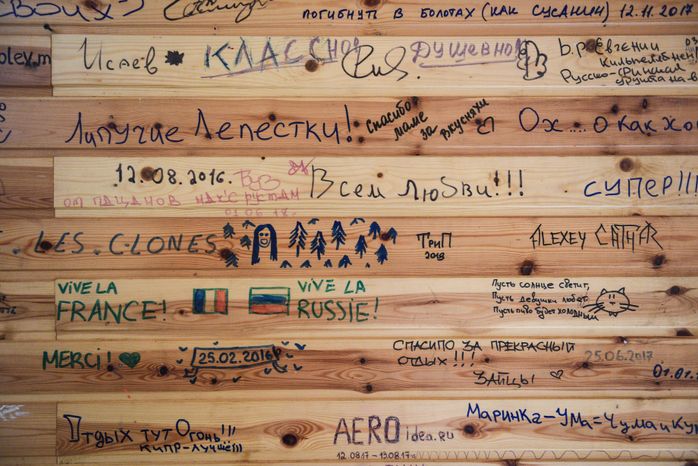 ПОГИБНУТЬ В БОЛОТАХ (КАК СУСАНИН) 12.11.2017
Исаев КЛАССНО! ДУШЕВНО!
Русско-Финская
Липучие Лепестки!
Спасибо
маме
за
вкусняхи
Ох....О как хо
12.08.2016.
ОТ ПАЦАНОВ МАКС РУСТАМ
01.06.18.
Всем любви!!!
СУПЕР!!!
LES CLONES
ТРИП
2018
ALEXEY
ViVE LA
FRANCE!
ViVE LA
RUSSIE!
Пусть солнце светит,
Пусть девушки любят,
Пусть пиво будет холодным
MERCI!
25.02.2016
СПАСИПО ЗА ПРЕКРАСНЫЙ
ОТДЫХ!!!
ЗАЙЦЫ
25.06.2017
01.01.
Отдых тут Огонь!!!
КИПР-ЛУЧШЕ)))
AEROidea.ru
12.08.17 - 13.08.17
МАРИНКА-УМА=ЧУМА И КУ